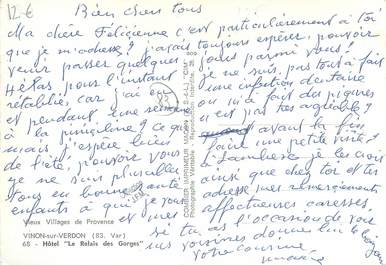 12 €
Bien chers tous
Ma chère Félicienne c'est particulièrement à toi
que je m'adresse ? j'avais toujours espérer, pouvoir
venir passer quelques jours parmi vous !
Hélas, pour l'instant je ne suis, pas tout à fait
rétablie, car j'ai eu une infection dentaire
et pendant, une semaine on m'a fait des piqures
à la pénicilline ? ce qui n'est pas très agréable ?
mais j'espère bien avant la fin
de l'été, pouvoir vous faire une petite visite ?
je ne suis plus
tous en bonne santé ainsi que chez toi et tes
enfants à qui je vous adresse mes remerciements
et mes affectueuses caresses,
si tu as l'occasion de voir
nos voisines donnes leur le bonjour
Votre cousine
Vieux Villages de Provence
VINON-sur-VERDON (83. Var)
68 - Hôtel "Le Relais des Gorges"
COMBIER IMPRIMEUR MACON (S.-&-L.) "CIM"
Photographie Véritable - Reprod. Interdite.